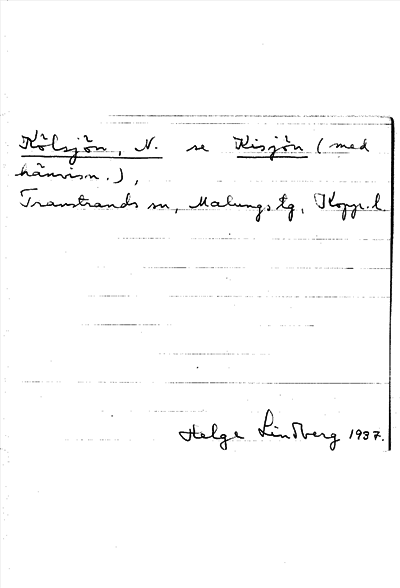 Kölsjön, N. se Kisjön (med
hänvisn.),
Transtrands sn, Malungs tg, Kopp. l.
Helge Lindberg 1937.